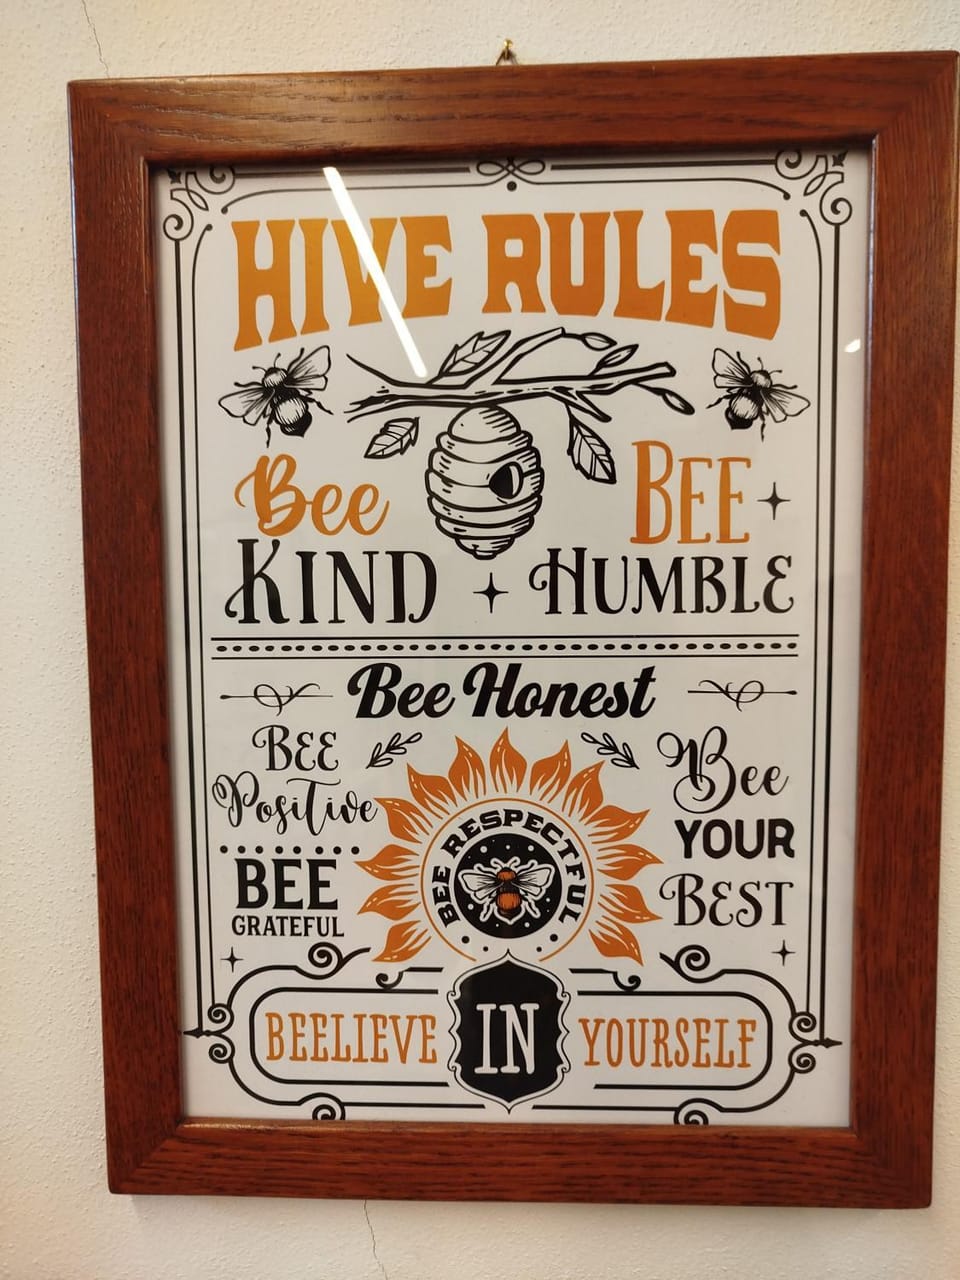 HIVE RULES
Bee
KIND
BEE
HUMBLE
Bee Honest
BEE
Positive
BEE
GRATEFUL
BEE RESPECTFUL
Bee
YOUR
BEST
BEELIEVE IN YOURSELF